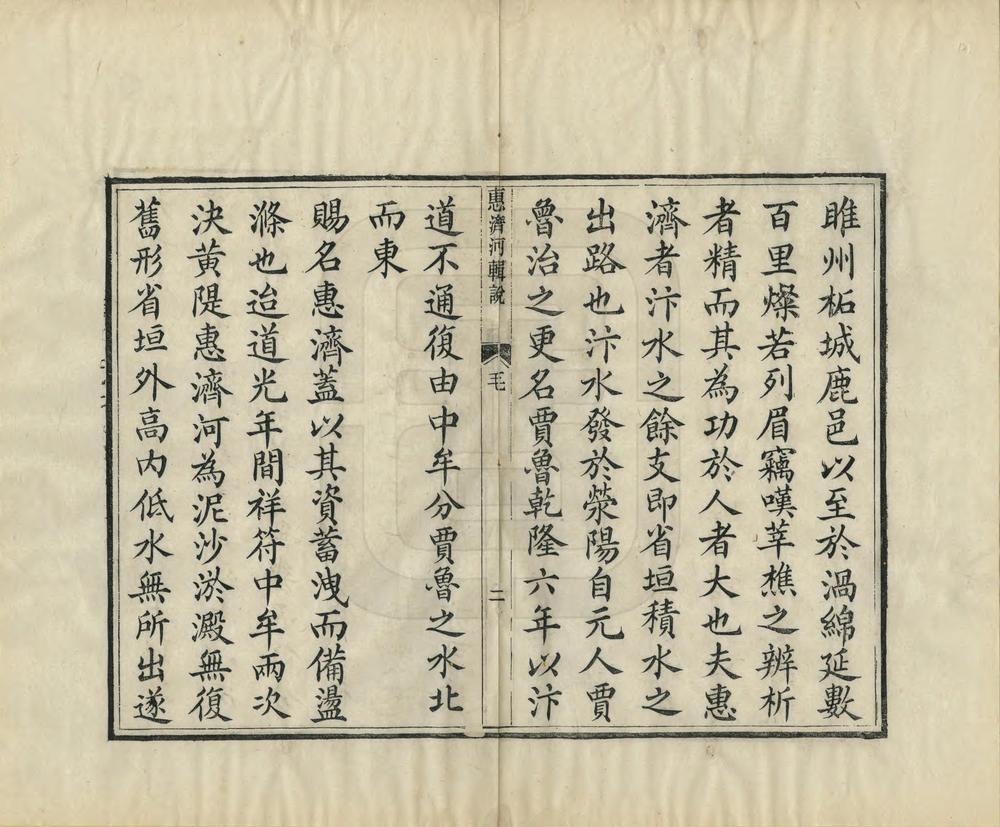 睢州柘城鹿邑以至於渦綿延數
百里燦若列眉竊嘆莘樵之辨析
者精而其為功於人者大也夫惠
濟者汴水之餘支即省垣積水之
出路也汴水發於滎陽自元人賈
魯治之更名賈魯乾隆六年以汴
惠濟河輯說
二
道不通復由中牟分賈魯之水北
而東
賜名惠濟蓋以其資蓄洩而備盪
滌也迨道光年間祥符中牟兩次
決黃隄惠濟河為泥沙淤澱無復
舊形省垣外高內低水無所出遂